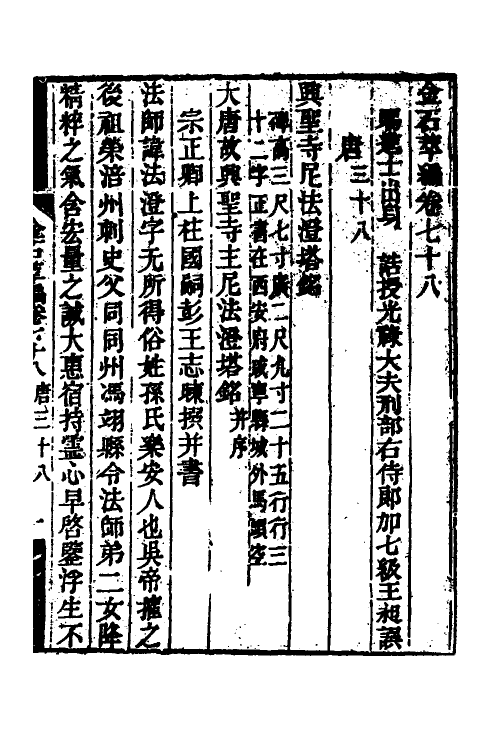 金石萃編卷七十八
賜進士出身　誥授光祿大夫刑部右侍郎加七級王昶譔
唐三十八
興聖寺尼法澄塔銘
碑高三尺七寸廣二尺九寸二十五行行三
十二字正書在西安府咸寧縣城外馬頭空
大唐故興聖寺主尼法澄塔銘并序
宗正卿上柱國嗣彭王志暕撰并書
法師諱法澄字无所得俗姓孫氏樂安人也吳帝權之
後祖榮涪州刺史父同同州馮翊縣令法師弟二女降
精粹之氣含宏量之誠大惠宿持靈心早啓鑒浮生不
金石萃編卷七十八唐三十八　一